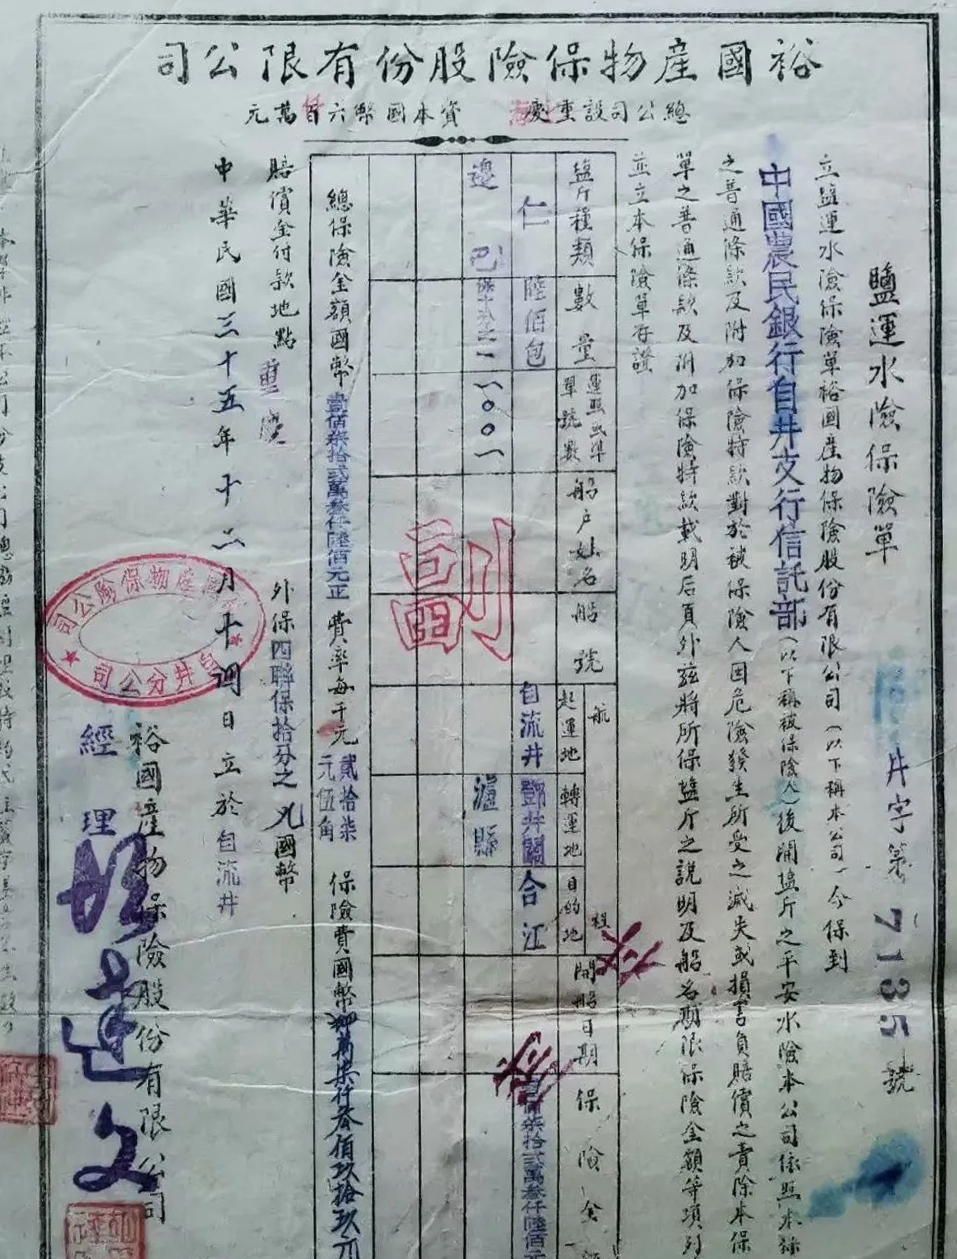 裕國産物保險股份有限公司
總公司設重慶 資本國幣六百萬元
鹽運水險保險單
井字第7135號
立盐運水險保險單裕國産物保險股份有限公司(以下稱本公司)今保到
中國農民銀行自井支行信託部(以下稱被保險人)後開盐斤之平安水險本公司依照本
之普通條款及附加保險特款對於被保險人因危險發生所受之滅失或損害負賠償之責除本保
單之普通條款及附加保險特款載明后頁外兹將所保盐斤之説明及船名期限保險金額等項列
並立本保險單存證
盐斤種類
數量
運照或準單號數
船户姓名
船號
航程
起運地
轉運地
目的地
開船日期
保險金
仁
陸佰包
自流井
鄧井關
合江
壹佰柒拾貳萬叁仟陸佰元
邊
巴
一〇〇一
瀘縣
副
總保險金額國幣壹佰柒拾貳萬叁仟陸佰元正
費率每千元貳拾柒元伍角
保險費國幣 萬柒仟叁佰玖拾玖元
賠償金付款地點 重慶
外保四聯保拾分之 國幣
中華民國三十五年十二月十四日立於自流井
裕國産物保險股份有限公司
經理
裕國産物保險公司
自井分公司